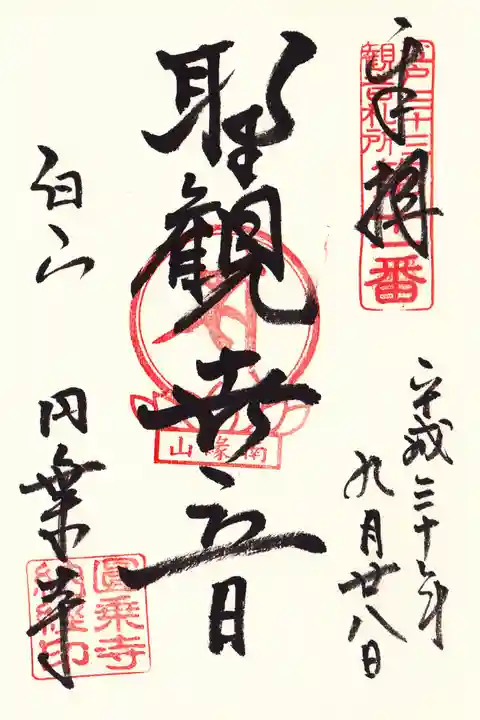 奉拝
江戸三十三
観音札所
第十一番
平成三十年
九月廿八日
聖観世音
南縁山
白山
円乗寺
圓乗寺
納經印